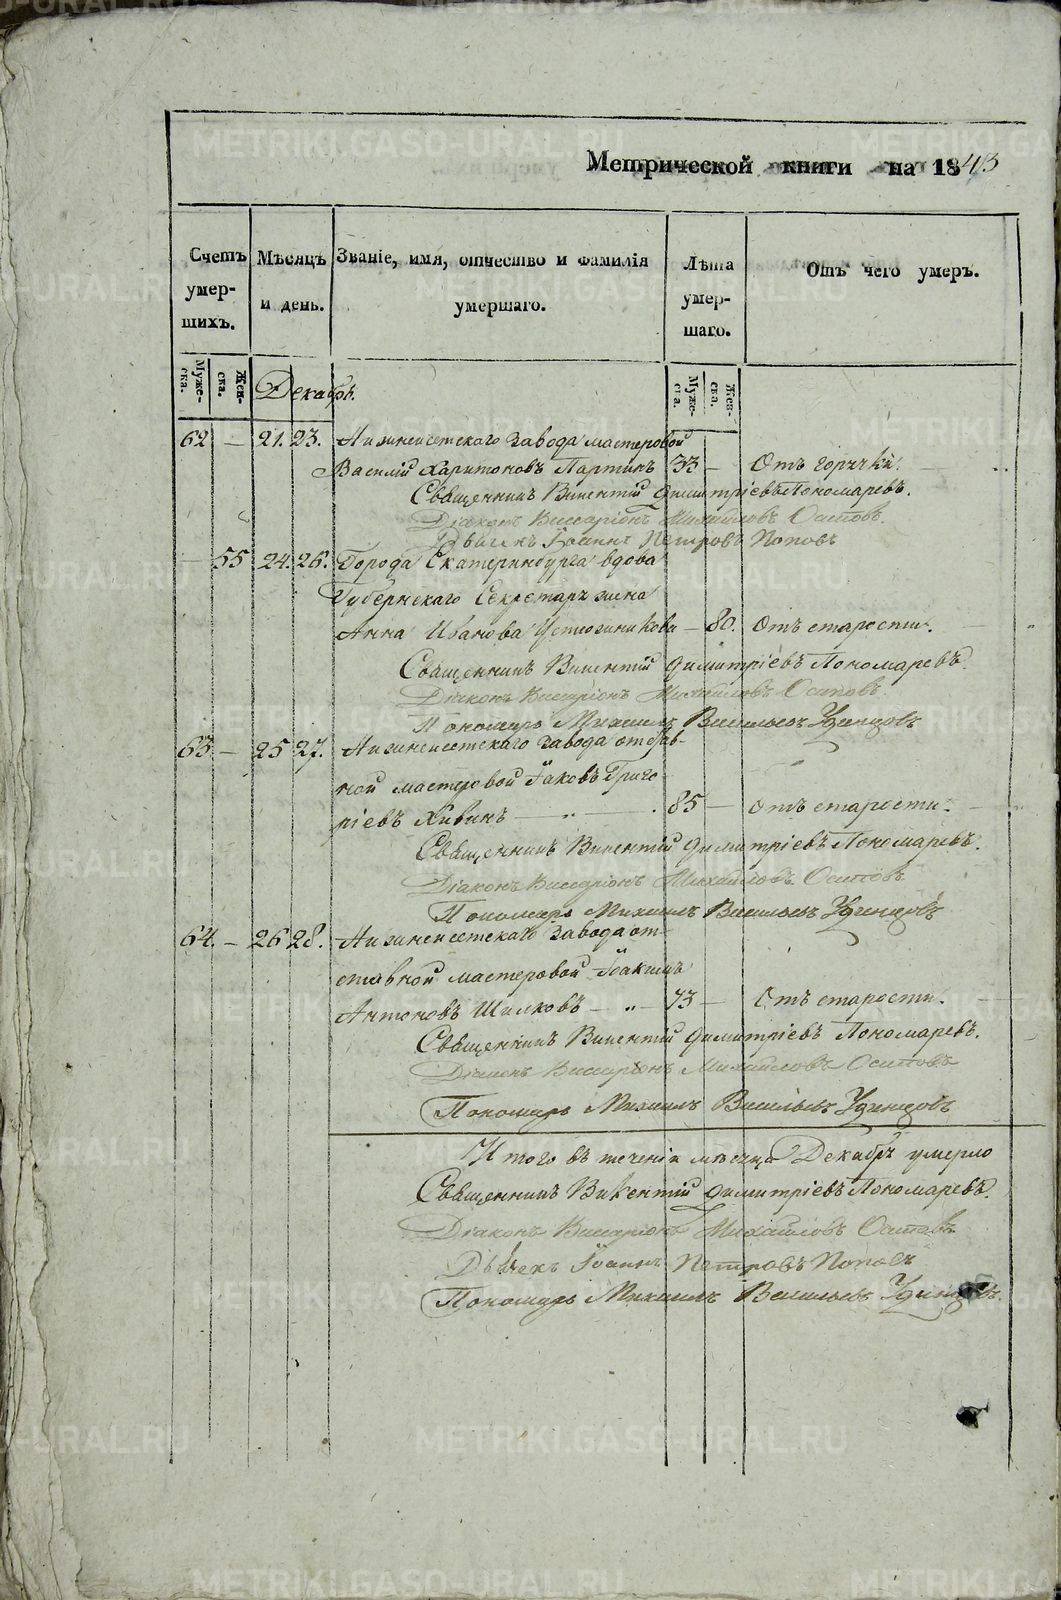 Метрической книги на 1843
Счетъ умер-шихъ.
Мѣсяцъ и день.
Званіе, имя, отчество и фамилія умершаго.
Лѣта умер-шаго.
Отъ чего умеръ.
Муже-ска.
Жен-ска.
Муже-ска.
Жен-ска.
Декабрь.
62 — 21. 23. Нижнеисетскаго завода мастеровой
Василій Харитоновъ Партинъ 33 — Отъ горячки.
Священникъ Викентій Димитріевъ Пономаревъ.
Діаконъ Виссаріонъ Михайловъ Осиповъ.
Дьячекъ Іоаннъ Петровъ Поповъ
— 55 24. 26. Города Екатеринбурга вдова
Губернскаго Секретаря жена
Анна Иванова Устюжанинова — 80. Отъ старости.
Священникъ Викентій Димитріевъ Пономаревъ.
Діаконъ Виссаріонъ Михайловъ Осиповъ.
Пономарь Михаилъ Васильевъ Удинцовъ
63 — 25 27. Нижнеисетскаго завода отстав-
ной мастеровой Іаковъ Григо-
ріевъ Хивинъ — „ — 85 — Отъ старости.
Священникъ Викентій Димитріевъ Пономаревъ.
Діаконъ Виссаріонъ Михайловъ Осиповъ
Пономарь Михаилъ Васильевъ Удинцовъ
64. — 26 28. Нижнеисетскаго завода от-
ставной мастеровой Іоакимъ
Антоновъ Шилковъ — „ — 73 — Отъ старости.
Священникъ Викентій Димитріевъ Пономаревъ.
Діаконъ Виссаріонъ Михайловъ Осиповъ
Пономарь Михаилъ Васильевъ Удинцовъ
Итого въ теченіи мѣсяца Декабря умерло
Священникъ Викентій Димитріевъ Пономаревъ.
Діаконъ Виссаріонъ Михайловъ Осиповъ
Дьячекъ Іоаннъ Петровъ Поповъ
Пономарь Михаилъ Васильевъ Удинцовъ.
METRIKI.GASO-URAL.RU